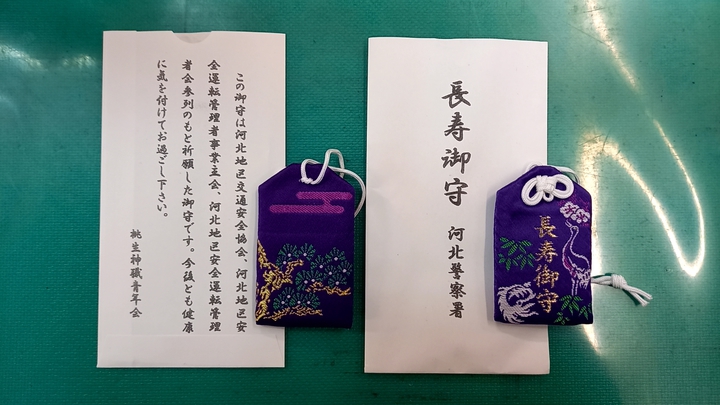 この御守は河北地区交通安全協会、河北地区安
全運転管理者事業主会、河北地区安全運転管理
者会参列のもと祈願した御守です。今後とも健康
に気を付けてお過ごし下さい。
桃生神職青年会
長寿御守
河北警察署
長寿御守